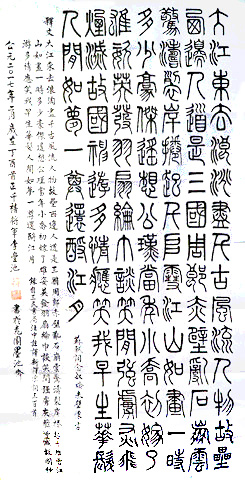 大江東去浪淘盡千古風流人物故壘
西邊人道是三國周郎赤壁亂石崩雲
驚濤裂岸捲起千堆雪江山如畫一時
多少豪傑遙想公瑾當年小喬初嫁了
雄姿英發羽扇綸巾談笑間強虜灰飛
煙滅故國神遊多情應笑我早生華髮
人間如夢一尊還酹江月
蘇軾詞念奴嬌赤壁懷古
釋文大江東去浪淘盡千古風流人物故壘西邊人道是三國周郎赤壁亂石崩雲驚濤裂岸捲起千堆雪江
山如畫一時多少豪傑遙想公瑾當年小喬初嫁了雄姿英發羽扇綸巾談笑間強虜灰飛煙滅故國神
遊多情應笑我早生華髮人間如夢一尊還酹江月
公元二〇一七年二月歲在丁酉